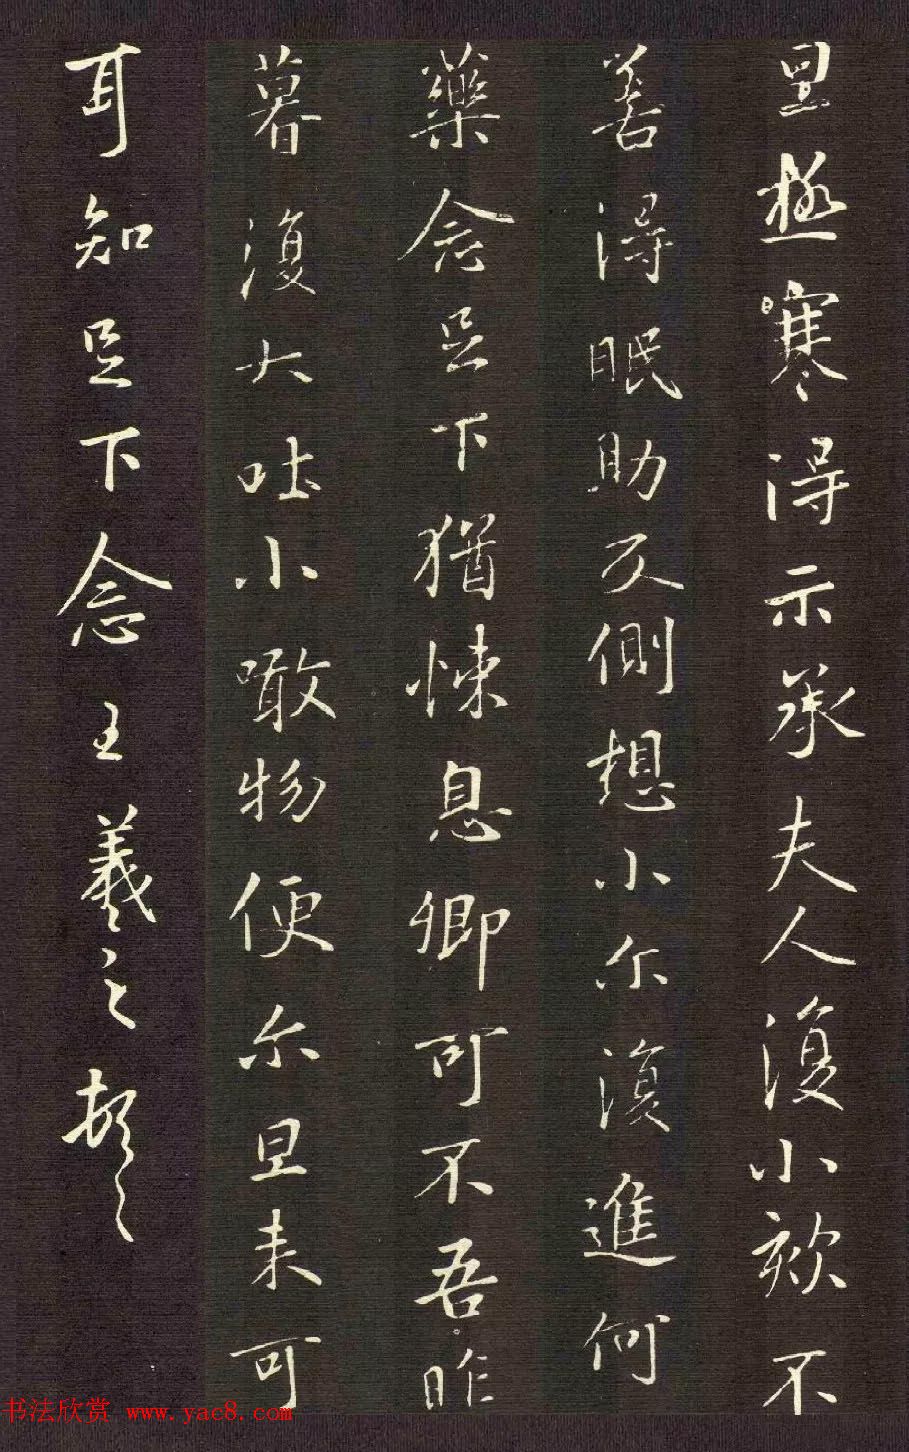 里極寒得示承夫人復小欬不
善得眠助反側想小尔復進何
藥念足下猶悚息卿可不吾昨
暮復大吐小噉物便尔旦来可
耳知足下念王羲之頓首
书法欣赏 www.yac8.com